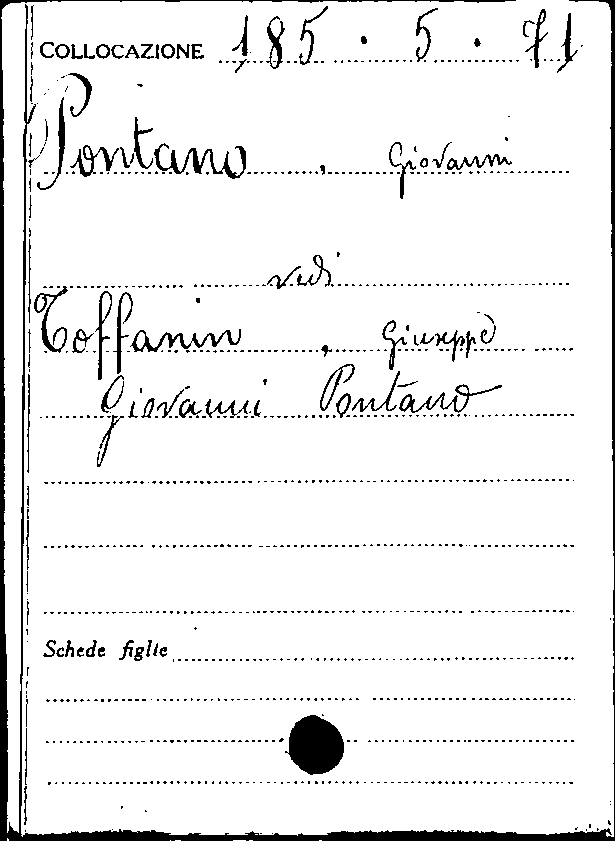 COLLOCAZIONE 185 . 5 . 71
Pontano , Giovanni
vedi
Toffanin , Giuseppe
Giovanni Pontano
Schede figlie